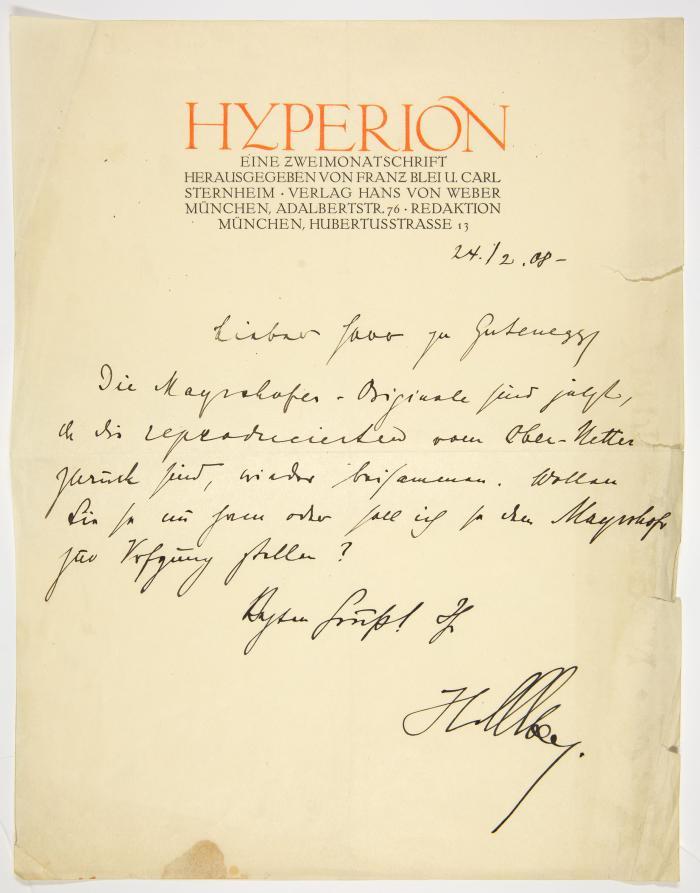 HYPERION
EINE ZWEIMONATSCHRIFT
HERAUSGEGEBEN VON FRANZ BLEI U. CARL
STERNHEIM · VERLAG HANS VON WEBER
MÜNCHEN, ADALBERTSTR. 76 · REDAKTION
MÜNCHEN, HUBERTUSSTRASSE 13
24./2.08–
Lieber Herr zu Gutenegg
Die Mayrshofer-Originale sind jetzt,
da die reproducierten vom Ober-Netter
zurück sind, wieder beisammen. Wollen
Sie sie nun haben oder soll ich sie dem Mayrshofer
zur Verfgung stellen?
Besten Gruß! Ihr